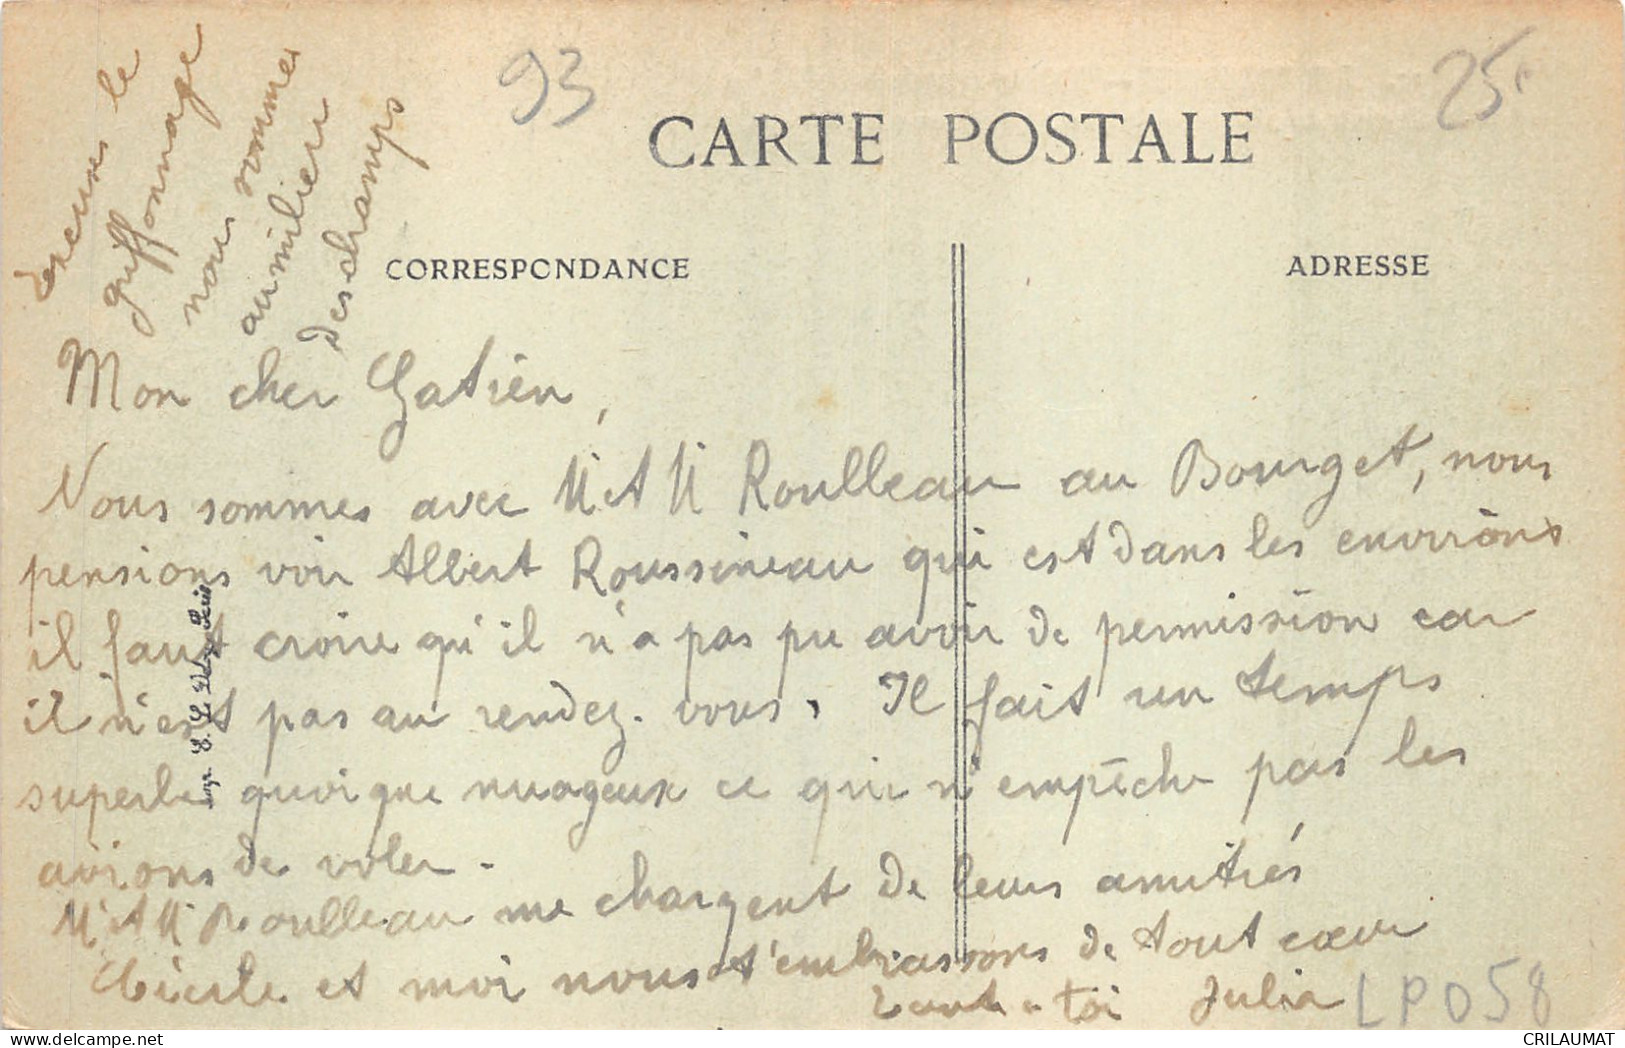 Excuses le
griffonnage
nous sommes
au milieu
des champs
93
25
CARTE POSTALE
CORRESPONDANCE
ADRESSE
Mon cher Gatien,
Nous sommes avec M et M Roulleau au Bourget, nous
pensions voir Albert Roussineau qui est dans les environs
il faut croire qu'il n'a pas pu avoir de permission car
il n'est pas au rendez-vous. Il fait un temps
superbe quoique nuageux ce qui n'empêche pas les
avions de voler.
M et M Roulleau me chargent de leurs amitiés
Cécile et moi nous t'embrassons de tout cœur
Julia
LP058
CRILAUMAT